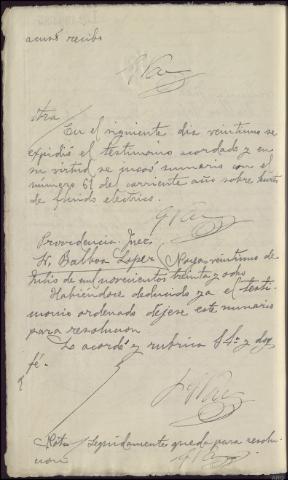 acuse recibo
Otra/
En el siguiente dia veintiuno se
expidió el testimonio acordado y en
su virtud se incoó sumario con el
número 61 del corriente año sobre hurto
de fluido electrico.
Providencia Juez
N. Balboa Lopez Noya veintiuno de
Julio de mil novecientos treinta y ocho
Habiendose deducido ya el testi-
monio ordenado dejese este sumario
para resolucion
Lo acordó y rubrica S Sª y doy
fé.
Nota/ Seguidamente queda para resolu-
cion